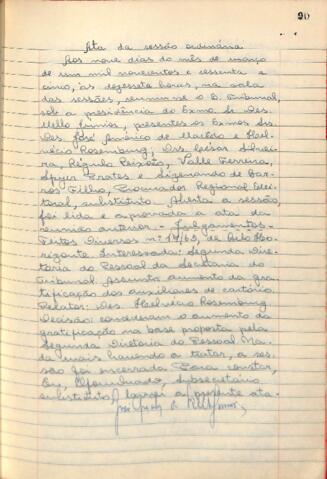 20
Ata da sessão ordinária
Aos nove dias do mês de março
de um mil novecentos e sessenta e
cinco, às dezessete horas, na sala
das sessões, reuniu-se o E. Tribunal,
sob a presidência do Exmo. Sr. Des.
Mello Júnior, presentes os Exmos Srs.
Des. José Américo de Macêdo e Hel-
vécio Rosemburg, Drs. César Silvei-
ra, Régulo Peixoto, Valle Ferreira,
Spyer Prates e Sizenando de Bar-
ros Filho, Procurador Regional Elei-
toral, substituto. Aberta a sessão,
foi lida e aprovada a ata da
reunião anterior. - Julgamentos -
Feitos Diversos nº de Belo Ho-
rizonte. Interessada: Segunda Dire-
toria do Pessoal da Secretaria do
Tribunal. Assunto: aumento da gra-
tificação dos auxiliares de cartório.
Relator: Des. Helvécio Rosemburg.
Decisão: concederam o aumento da
gratificação na base proposta pela
Segunda Diretoria do Pessoal. Na-
da mais havendo a tratar, a ses-
são foi encerrada. Para constar,
Eu, Subsecretário
substituto, lavrei a presente ata.